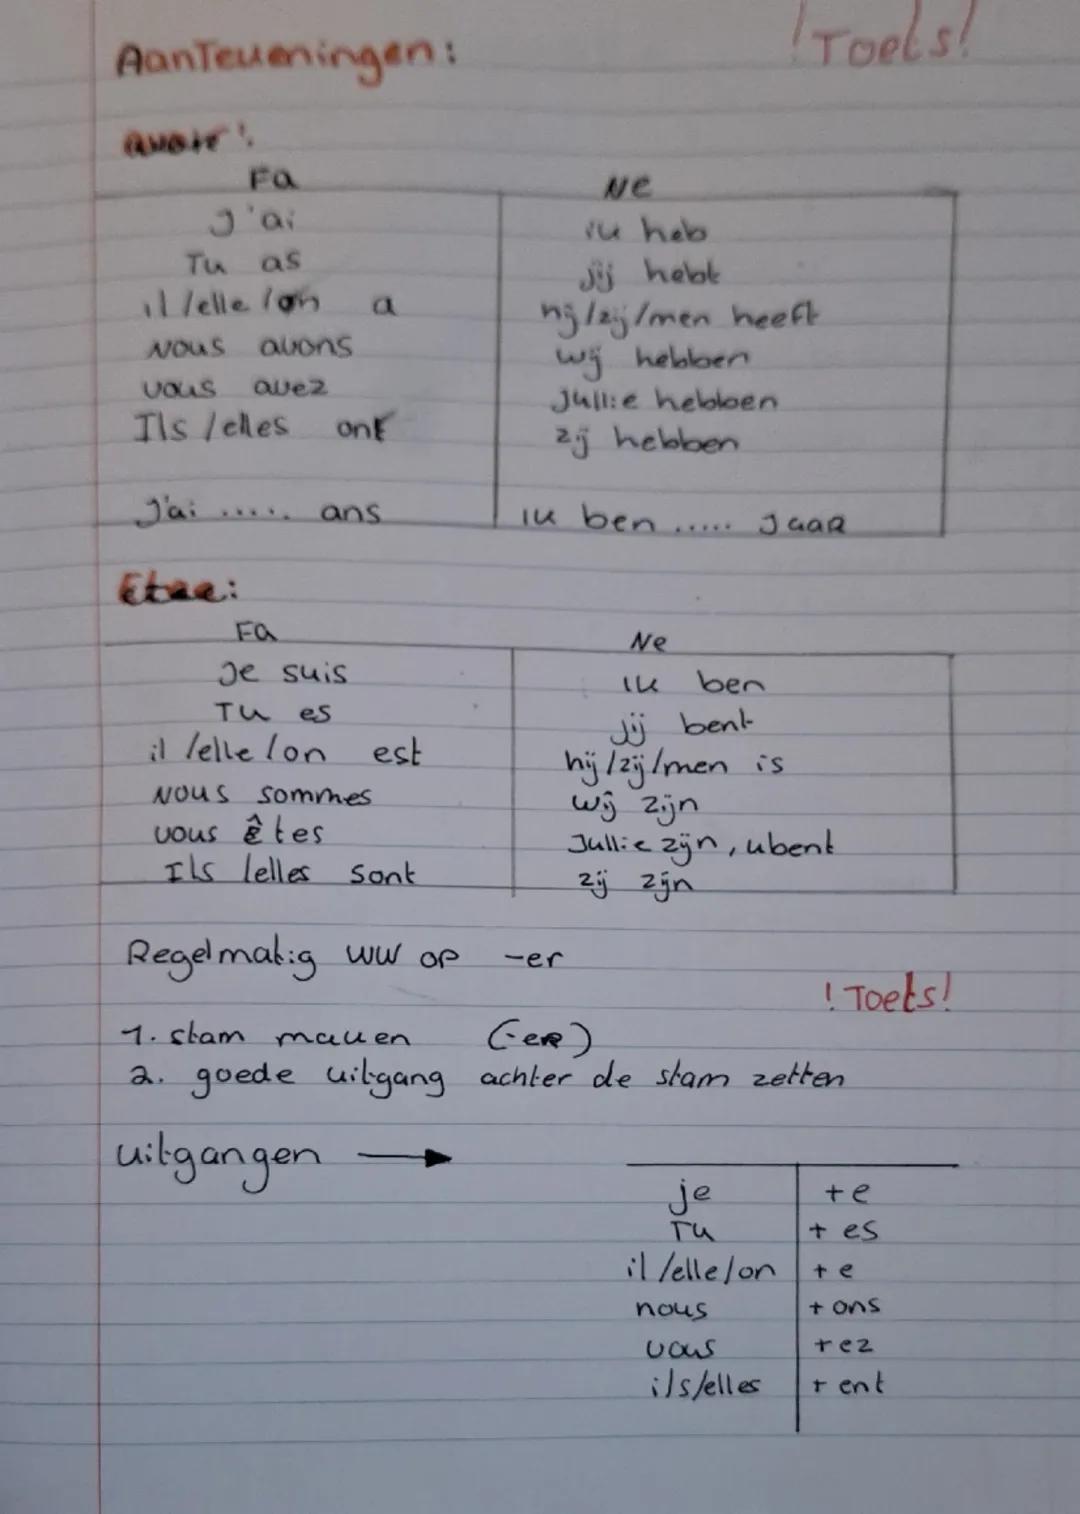 Aantekeningen: ! Toets!
avoir:
Fa Ne
J'ai ik heb
Tu as jij hebt
il/elle/on a hij/zij/men heeft
Nous avons wij hebben
vous avez Jullie hebben
Ils/elles ont zij hebben
J'ai ..... ans ik ben ..... Jaar
Etre:
Fa Ne
Je suis ik ben
Tu es jij bent
il/elle/on est hij/zij/men is
Nous sommes wij zijn
vous êtes Jullie zijn, u bent
Ils/elles sont zij zijn
Regelmatig ww op -er
! Toets!
1. stam maken (-er)
2. goede uitgang achter de stam zetten
uitgangen →
je +e
Tu + es
il/elle/on + e
nous + ons
vous +ez
ils/elles + ent